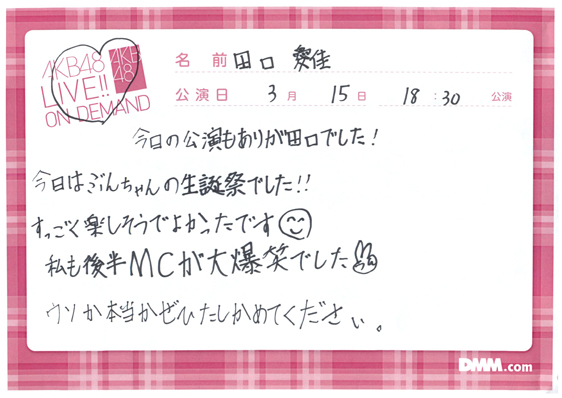 AKB48
LIVE!!
ON DEMAND
AKB
48
名前 田口 愛佳
公演日 3月 15日 18:30 公演
今日の公演もありが田口でした!
今日はぶんちゃんの生誕祭でした!!
すっごく楽しそうでよかったです
私も後半MCが大爆笑でした
ウソか本当かぜひたしかめてください。
DMM.com